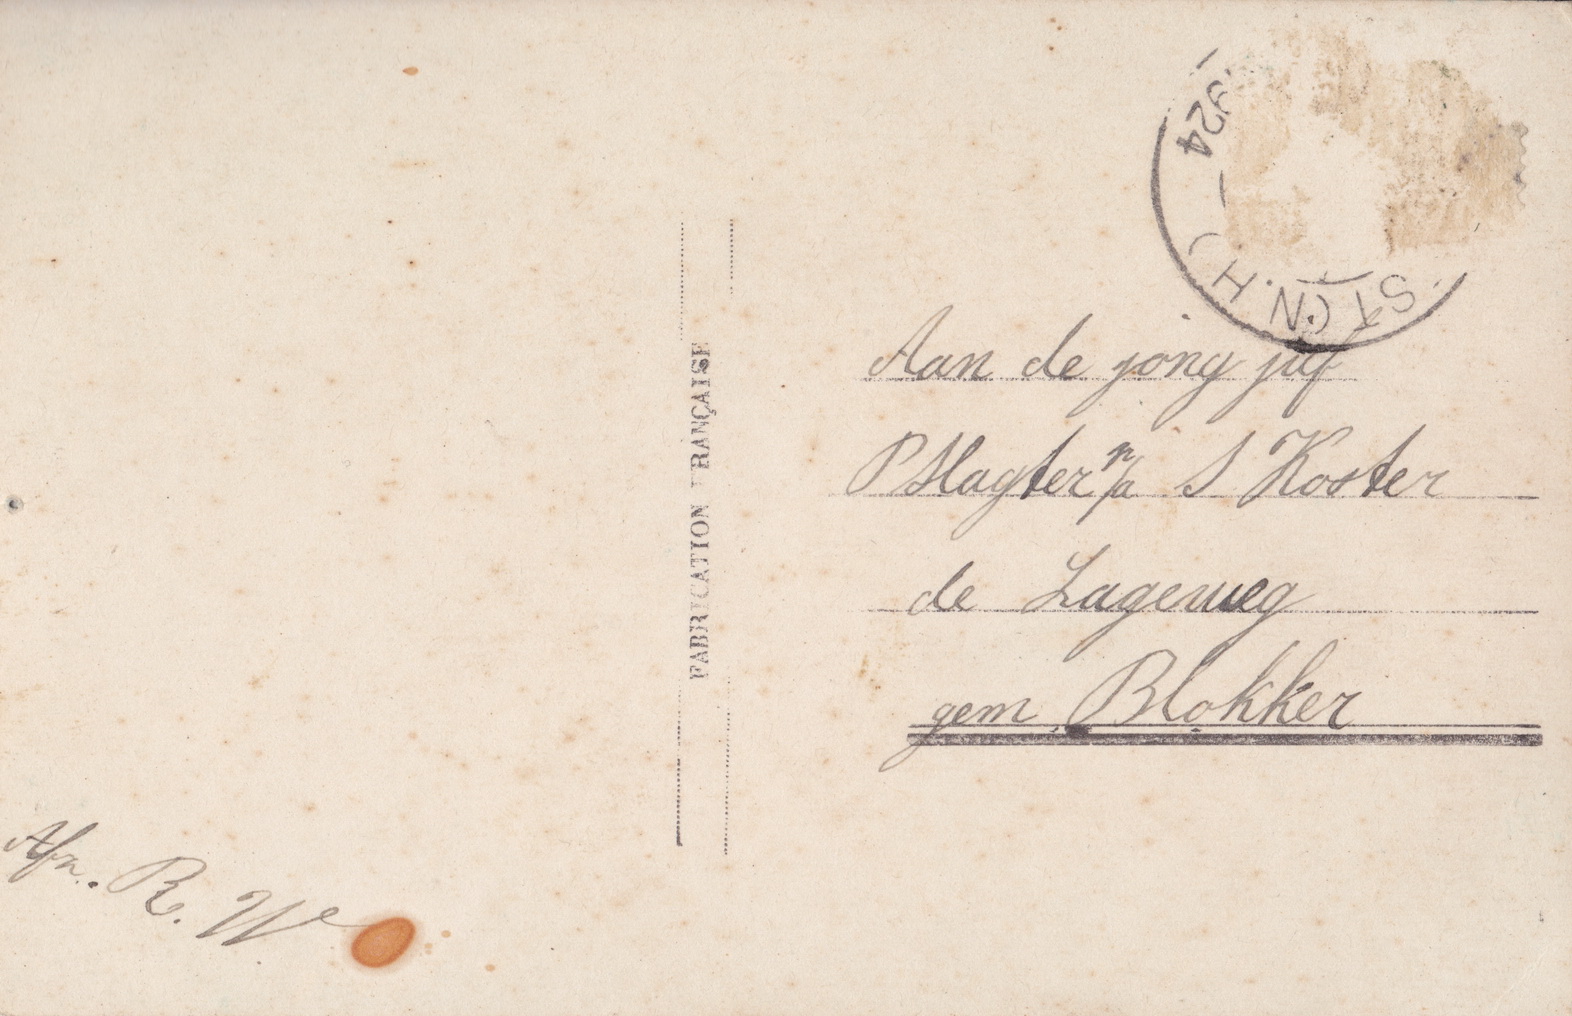 924
ST (N.H.)
FABRICATION FRANÇAISE
Aan de jong juf
P Slagter n/a S Koster
de Lageweg
gem Blokker
Afz. R. W